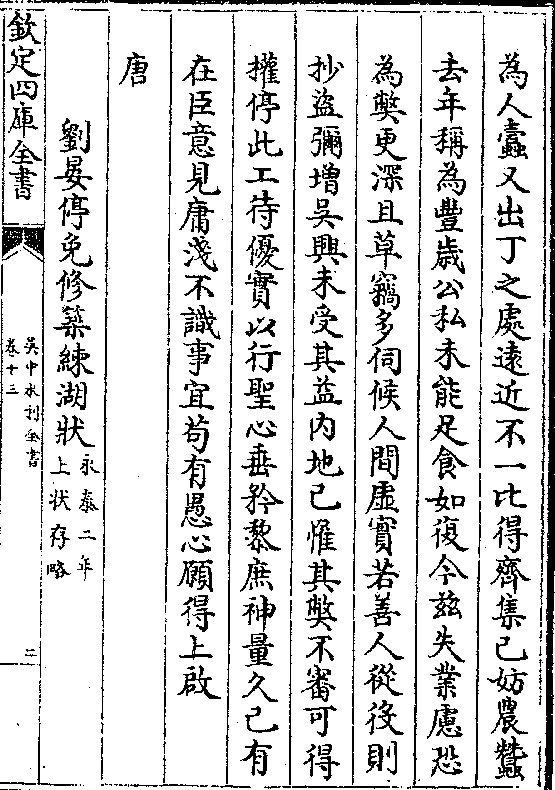 為人蠹又出丁之處逺近不一比得齊集已妨農蠶
去年稱為豐歳公私未能足食如復今兹失業慮恐
為弊更深且草竊多伺候人間虚實若善人從役則
抄盗彌增吳興未受其益内地已惟其弊不審可得
權停此工待優實以行聖心垂矜黎庶神量久已有
在臣意見庸淺不識事宜苟有愚心願得上啟
唐
劉晏停免修築練湖狀永泰二年上状存略
欽定四庫全書
吳中水利全書
卷十三
二